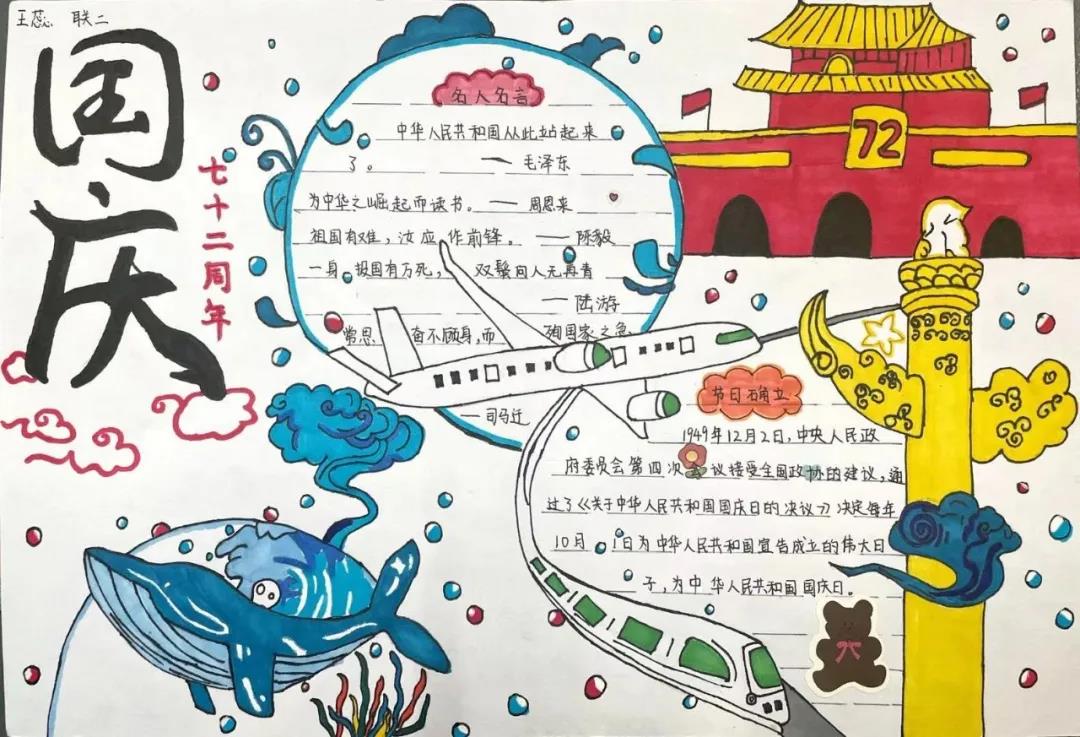 王蕊 联二
国庆
七十二周年
名人名言
中华人民共和国从此站起来
了。 —— 毛泽东
为中华之崛起而读书。—— 周恩来
祖国有难，汝应作前锋。 —— 陈毅
一身报国有万死， 双鬓向人无再青
—— 陆游
常思 奋不顾身，而 殉国家之急
— 司马迁
72
节日确立
1949年12月2日，中央人民政
府委员会第四次会议接受全国政协的建议，通
过了《关于中华人民共和国国庆日的决议》决定每年
10月 1日为中华人民共和国宣告成立的伟大日
子，为中华人民共和国国庆日。